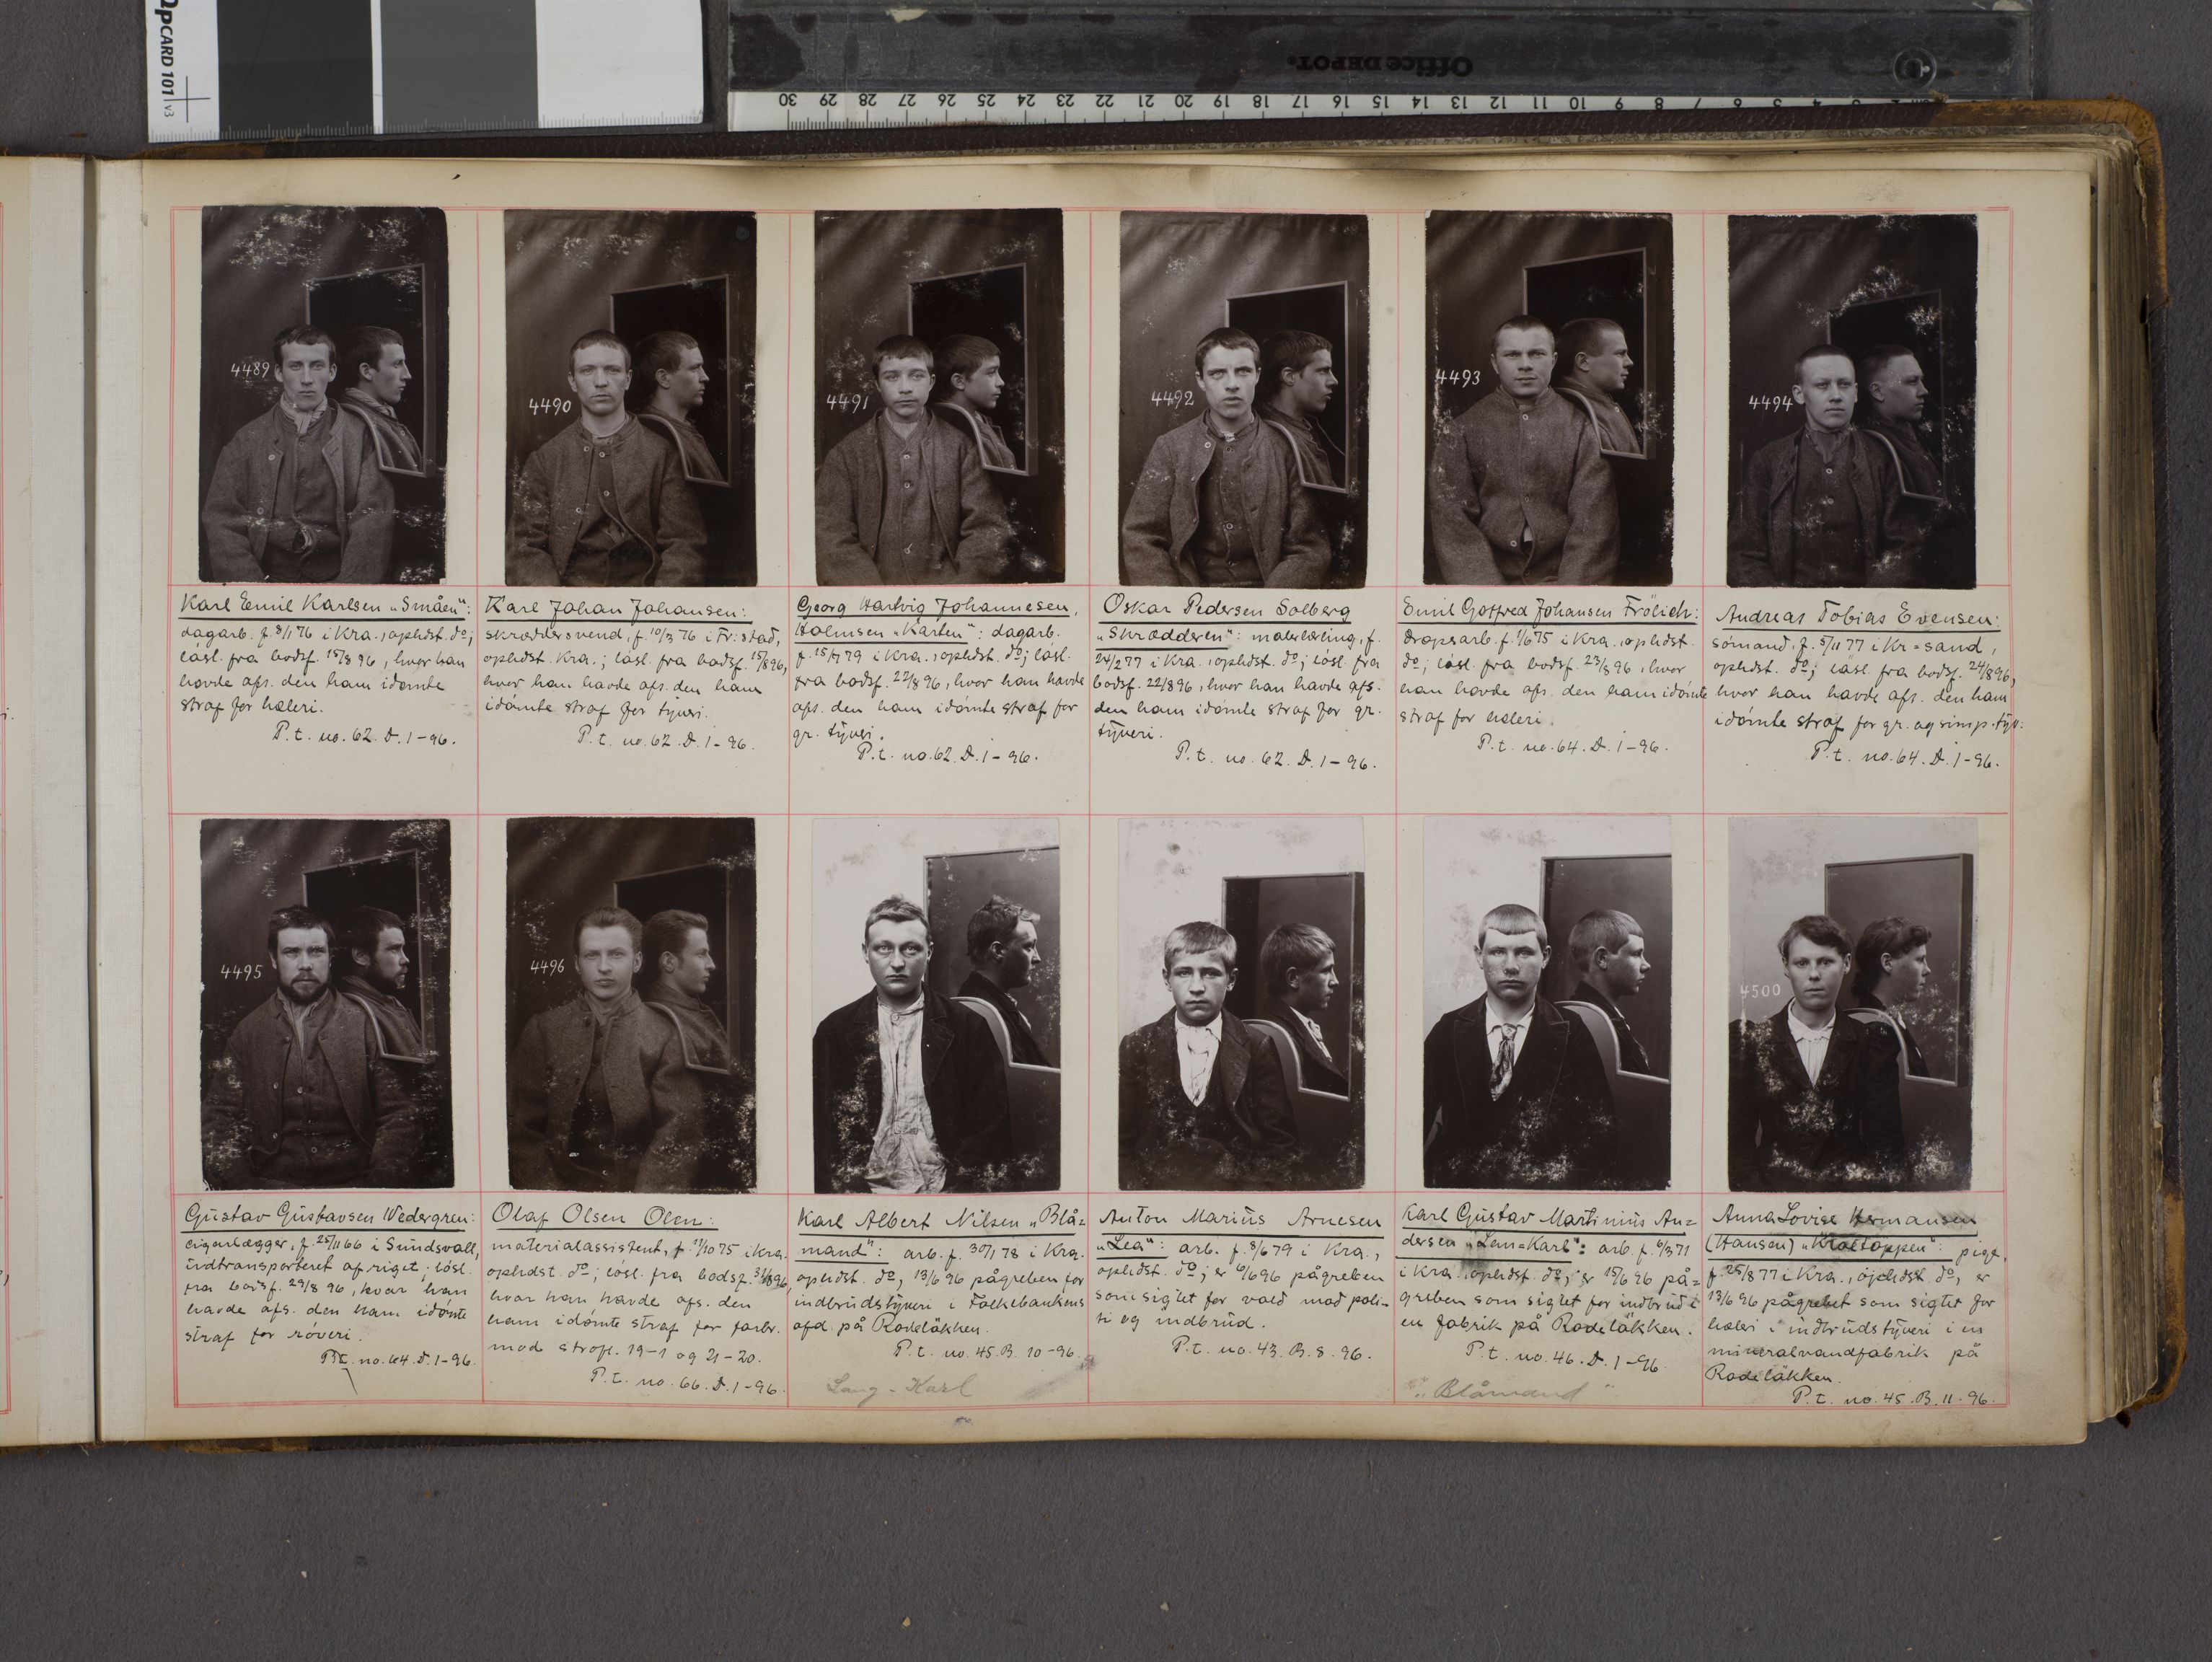 QPCARD 101 v3
Office DEPOT.
30 29 28 27 26 25 24 23 22 21 20 19 18 17 16 15 14 13 12 11 10 9 8 7 6 5 4 3 2
4489
4490
4491
4492
4493
4494
Karl Emil Karlsen „Småen“:
dagarb. f. 8/1 76 i Kra., ophdst. do;
lösl. fra bodsf. 15/8 96, hvor han
havde afs. den ham idömte
straf for hæleri.
P.t. no. 62. D. 1-96.
Karl Johan Johansen:
skræddersvend, f. 10/3 76 i Fr:stad,
ophdst. Kra.; lösl. fra bodsf. 15/8 96,
hvor han havde afs. den ham
idömte straf for tyveri.
P.t. no. 62. D. 1-96.
Georg Hartvig Johannesen,
Holmsen „Karten“: dagarb.
f. 15/1 79 i Kra., ophdst. do; lösl.
fra bodsf. 22/8 96, hvor han havde
afs. den ham idömte straf for
gr. tyveri.
P.t. no. 62. D. 1-96.
Oskar Pedersen Solberg
„Skrædderen“: malerlærling, f.
24/2 77 i Kra., ophdst. do; lösl. fra
bodsf. 22/8 96, hvor han havde afs.
den ham idömte straf for gr.
tyveri.
P.t. no. 62. D. 1-96.
Emil Gotfred Johansen Frölich:
dropsarb. f. 1/6 75 i Kra., ophdst.
do; lösl. fra bodsf. 23/8 96, hvor
han havde afs. den ham idömte
straf for hæleri.
P.t. no. 64. D. 1-96.
Andreas Tobias Evensen:
sömand, f. 5/11 77 i Kr=sand,
ophdst. do; lösl. fra bodsf. 24/8 96,
hvor han havde afs. den ham
idömte straf for gr. og simp. tyv:
P.t. no. 64. D. 1-96.
4495
4496
4500
Gustav Gustavsen Wedergren:
cigarlægger, f. 25/11 66 i Sundsvall,
udtransporteret af riget; lösl.
fra bodsf. 29/8 96, hvor han
havde afs. den ham idömte
straf for röveri.
P.t. no. 64. D. 1-96.
Olaf Olsen Olen:
materialassistent, f. 1/10 75 i Kra.
ophdst. do; lösl. fra bodsf. 31/8 96,
hvor han havde afs. den
ham idömte straf for forbr.
mod strafl. 19-1 og 21-20.
P.t. no. 66. D. 1-96.
Karl Albert Nilsen „Blå=
mand“: arb. f. 30/1 78 i Kra.
ophdst. do, 13/6 96 pågreben for
indbrudstyveri i Folkebankens
afd. på Rodelökken.
P.t. no. 45. B. 10-96.
Lang-Karl
Anton Marius Arnesen
„Lea“: arb. f. 8/6 79 i Kra.,
ophdst. do; er 6/6 96 pågreben
som sigtet for vold mod poli-
ti og indbrud.
P.t. no. 43. B. 8. 96.
Karl Gustav Martinius An=
dersen „Lem=Karl“: arb. f. 6/3 71
i Kra., ophdst. do; er 15/6 96 på=
greben som sigtet for indbrud i
en fabrik på Rodelökken.
P.t. no. 46. D. 1-96.
„Blåmand“
Anna Lovise Hermansen
(Hansen) „Kroltoppen“: pige,
f. 25/8 77 i Kra., ophdst. do, er
13/6 96 pågrebet som sigtet for
hæleri i indbrudstyveri i en
mineralvandfabrik på
Rodelökken.
P.t. no. 45. B. 11-96.